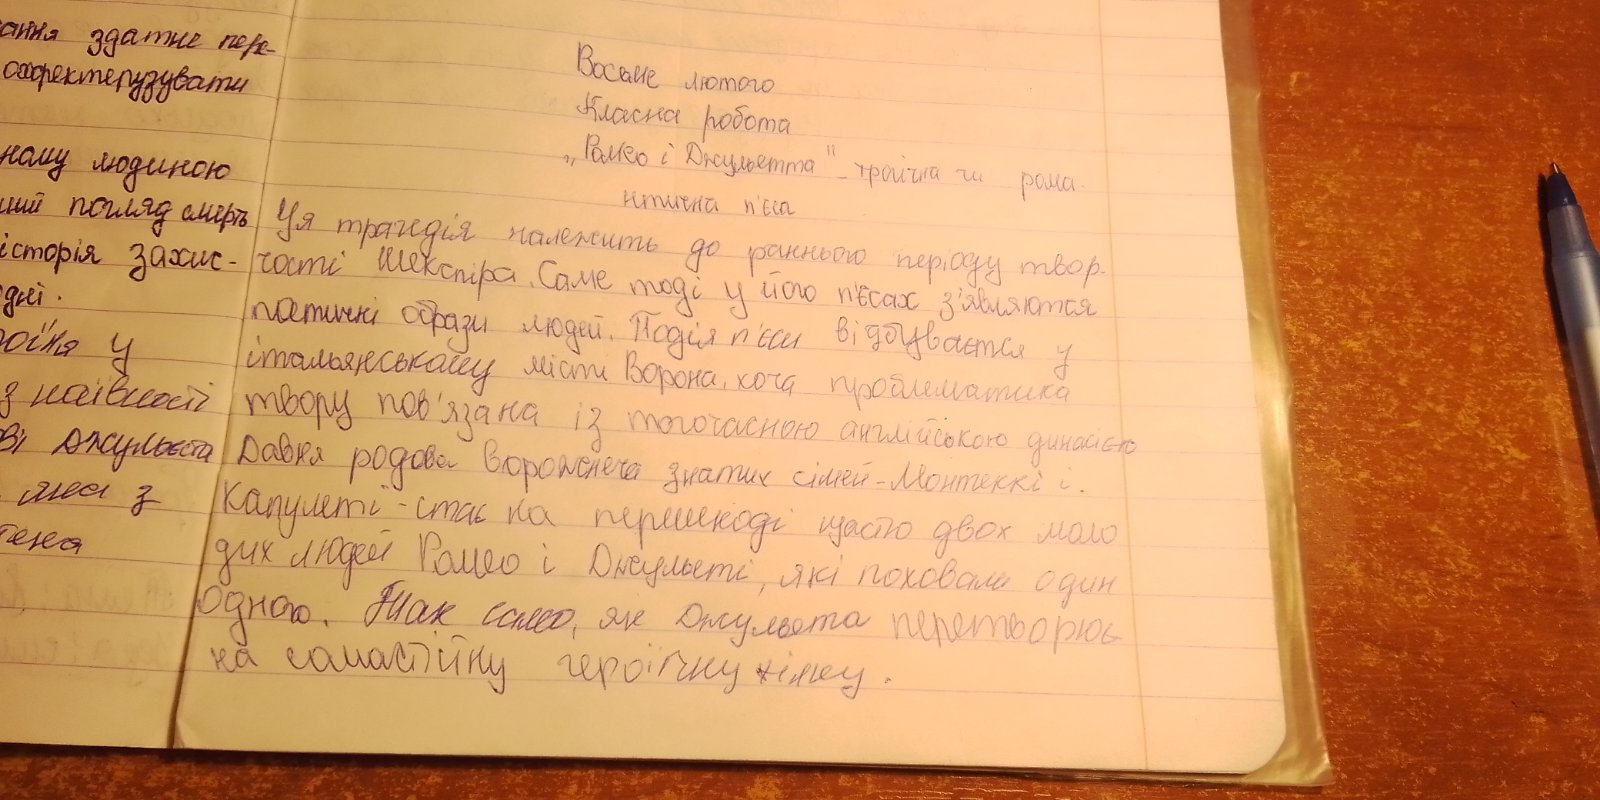 ання здатне пере-
охаректерузувати
ному людиною
ший погляд смерть
історія захис-
дні.
роїня у
з наївності
ві Джульєта
яка з
тена
Восьме лютого
Класна робота
„Ромео і Джульєтта" - трагічна чи рома-
нтична п'єса
Ця трагедія належить до раннього періоду твор-
чості Шекспіра. Саме тоді у його п'єсах з'являются
поетичні образи людей. Подія п'єси відбувається у
італьянському місти Ворона, хоча проблематика
твору пов'язана із тогочасною англійською династією
Давня родова ворожнеча знатих сімей - Монтеккі і.
Капулеті - стає на перешкоді щастю двох моло
дих людей Ромео і Джульєті, які поховали один
одного. Так само, як Джульєта перетворює
на самастійну героїчну жінку.